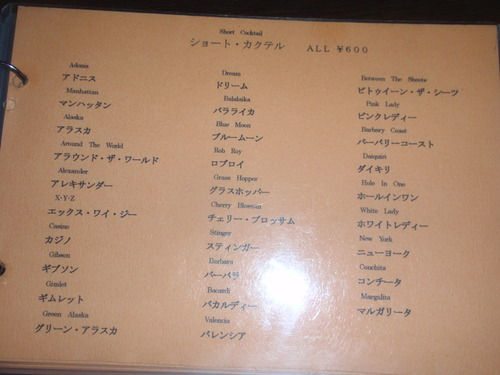 Short Cocktail
ショート・カクテル ALL ¥600
Adonis
アドニス
Manhattan
マンハッタン
Alaska
アラスカ
Around The World
アラウンド・ザ・ワールド
Alexander
アレキサンダー
X・Y・Z
エックス・ワイ・ジー
Casino
カジノ
Gibson
ギブソン
Gimlet
ギムレット
Green Alaska
グリーン・アラスカ
Dream
ドリーム
Balalaika
バラライカ
Blue Moon
ブルームーン
Rob Roy
ロブロイ
Grass Hopper
グラスホッパー
Cherry Blossom
チェリー・ブロッサム
Stinger
スティンガー
Barbara
バーバラ
Bacardi
バカルディー
Valencia
バレンシア
Between The Sheets
ビトゥイーン・ザ・シーツ
Pink Lady
ピンクレディー
Barbary Coast
バーバリーコースト
Daiquiri
ダイキリ
Hole In One
ホールインワン
White Lady
ホワイトレディー
New York
ニューヨーク
Conchita
コンチータ
Margalita
マルガリータ